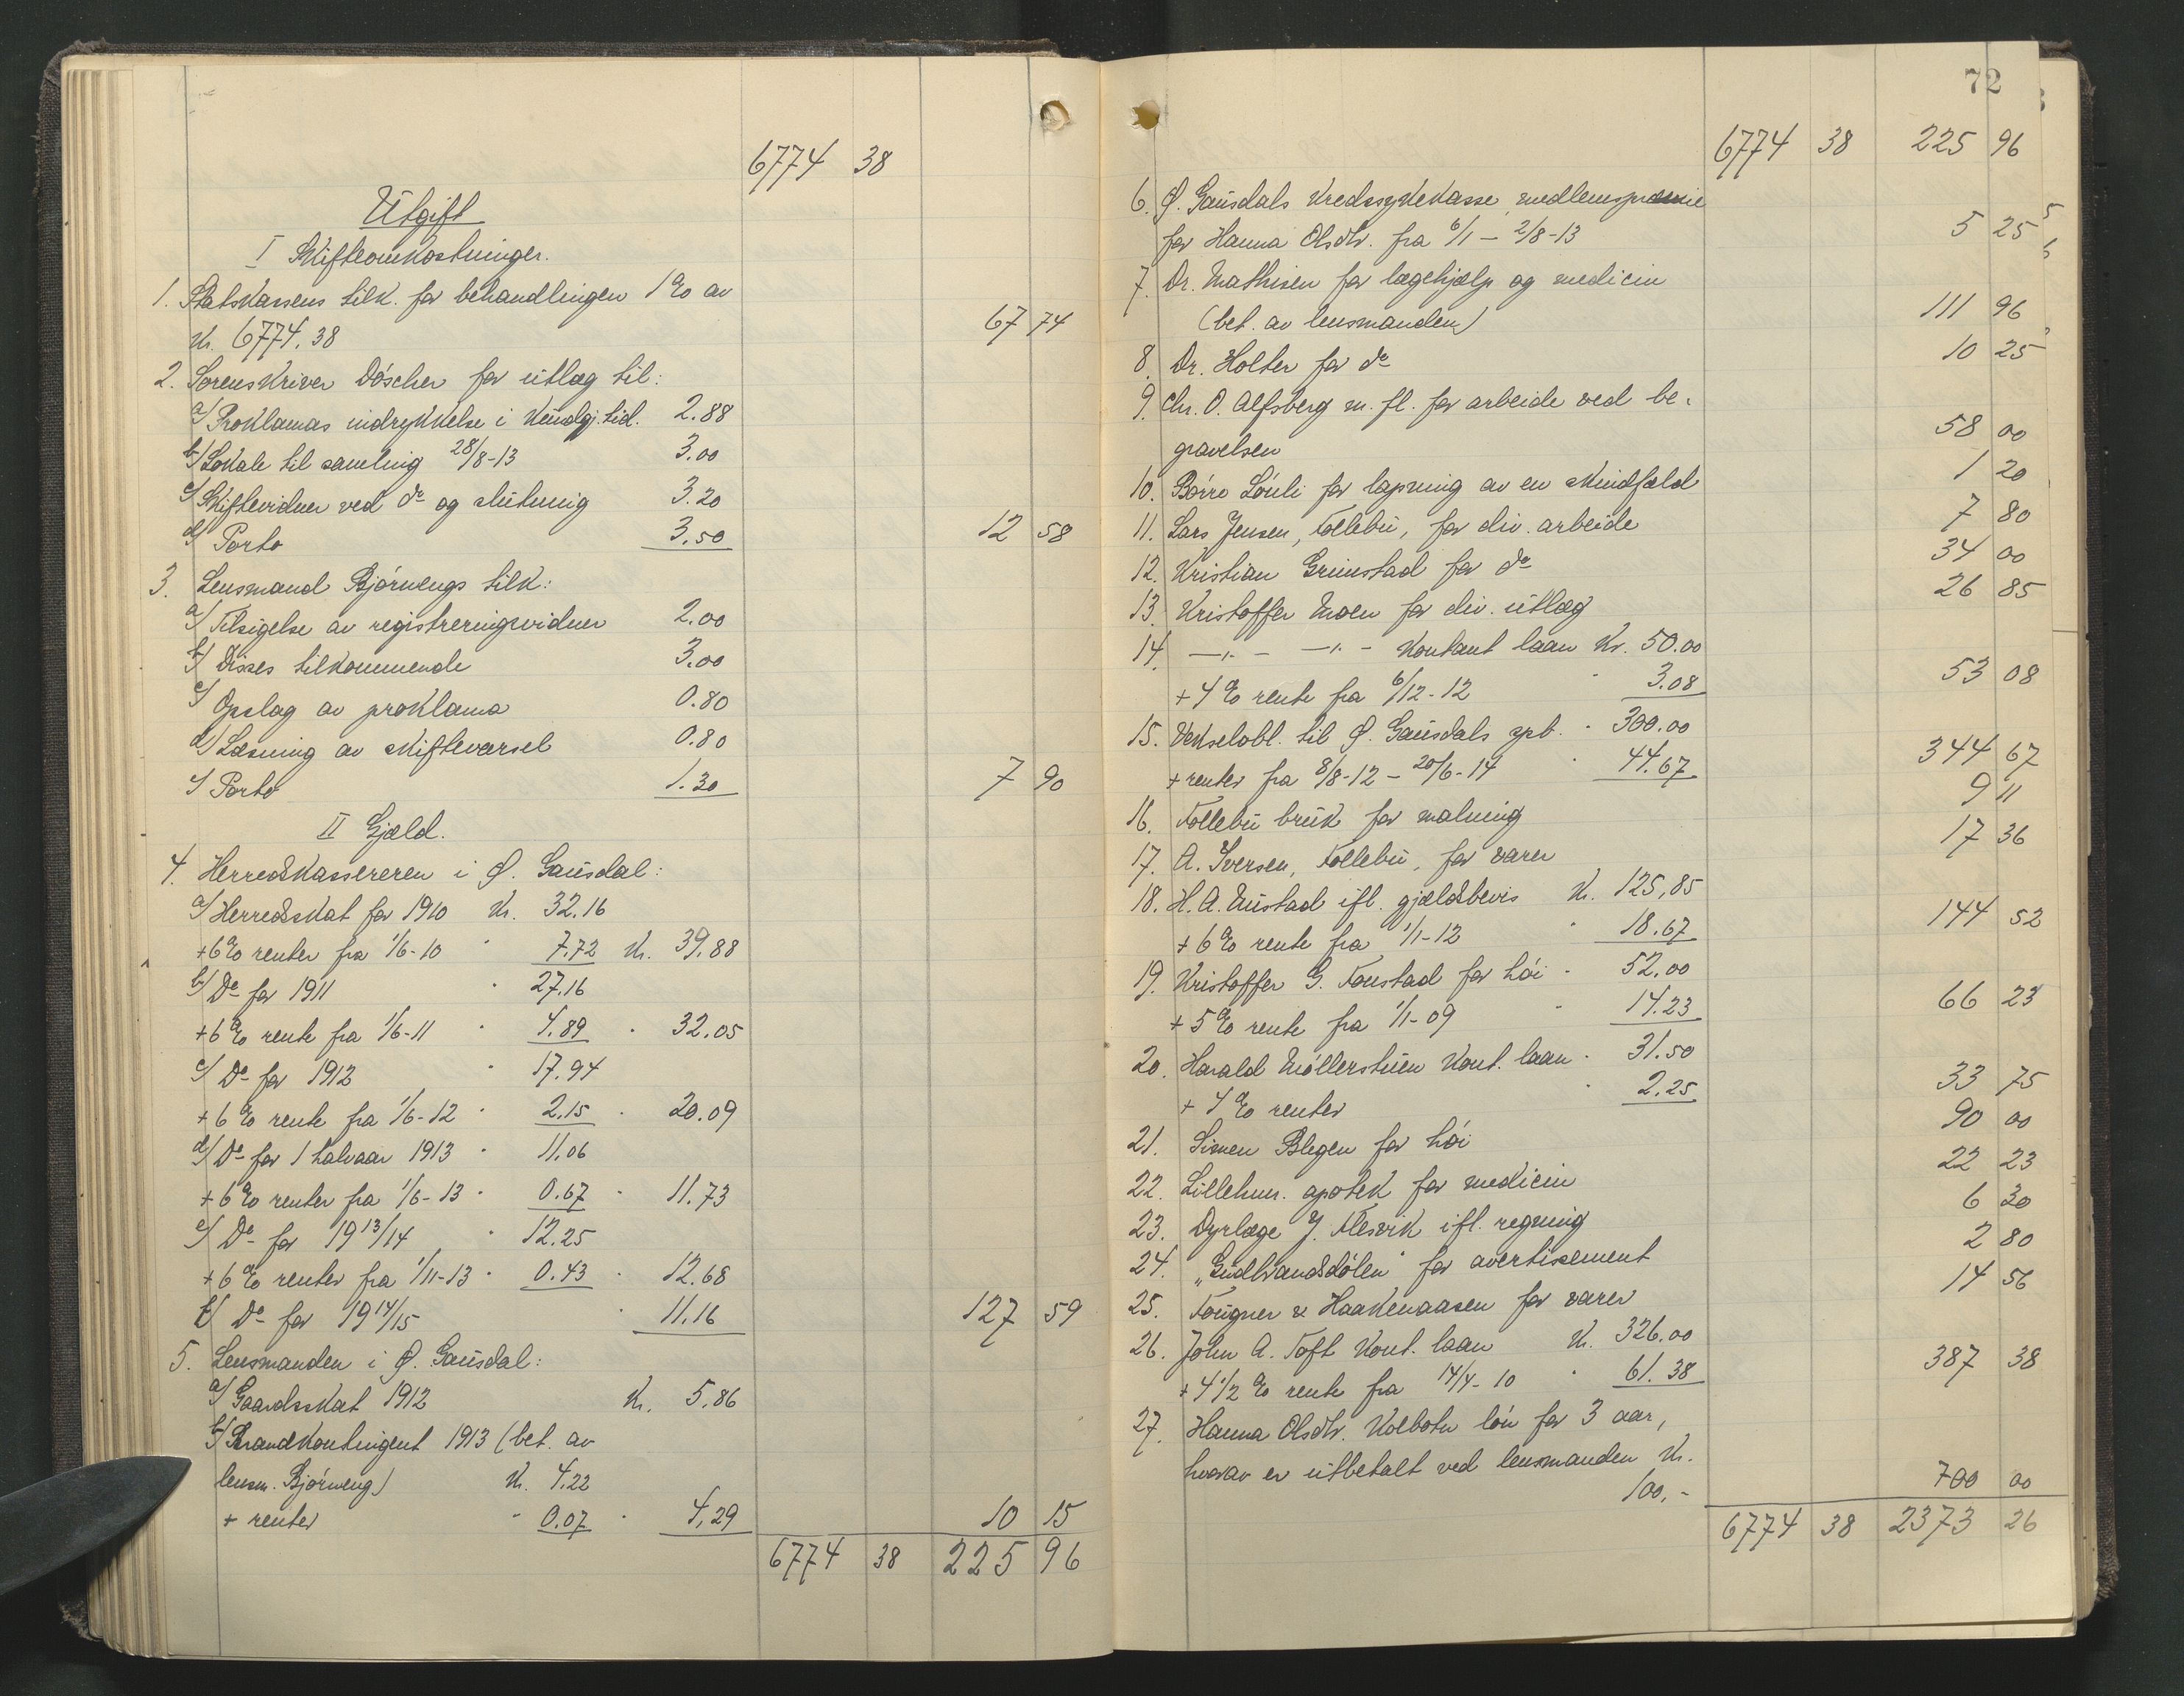 6774 38
Utgift
I Skifteomkostninger.
1. Statskassens tilk. for behandlingen 1 % av
Kr. 6774.38 67 74
2. Sorenskriver Döscher for utlæg til:
a/ Proklamas indrykkelse i Kundgj.tid. 2.88
b/ Lokale til samling 28/8-13 3.00
c/ Skiftevidner ved do og slutning 3.20
d/ Porto 3.50 12 58
3. Lensmand Bjørnengs tilk:
a/ Tilsigelse av registreringsvidner 2.00
b/ Disses tilkommende 3.00
c/ Opslag av proklama 0.80
d/ Læsning av skiftevarsel 0.80
e/ Porto 1.30 7 90
II Gjæld.
4. Herredskassereren i Ø. Gausdal:
a/ Herredsskat for 1910 Kr. 32.16
+ 6 % renter fra 1/6-10 " 7.72 Kr. 39.88
b/ Do for 1911 " 27.16
+ 6 % rente fra 1/6-11 " 4.89 " 32.05
c/ Do for 1912 " 17.94
+ 6 % rente fra 1/6-12 " 2.15 " 20.09
d/ Do for 1 halvaar 1913 " 11.06
+ 6 % renter fra 1/6-13 " 0.67 " 11.73
e/ Do for 1913/14 " 12.25
+ 6 % renter fra 1/11-13 " 0.43 " 12.68
f/ Do for 1914/15 " 11.16 127 59
5. Lensmanden i Ø. Gausdal:
a/ Gaardsskat 1912 Kr. 5.86
b/ Brandkontingent 1913 (bet. av
lensm. Bjørneng) Kr. 4.22
+ renter " 0.07 " 4.29 10 15
6774 38 225 96
72
6774 38 225 96
6. Ø. Gausdals Kredssykekasse medlemspræmie
for Hanna Olsdtr. fra 6/1 - 2/8-13 5 25
7. Dr. Mathisen for lægehjælp og medicin
(bet. av lensmanden) 111 96
8. Dr. Holter for do 10 25
9. Chr. O. Alfsberg m. fl. for arbeide ved be-
gravelsen 58 00
10. Börre Lönli for lapning av en skindfæld 1 20
11. Lars Jensen, Follebu, for div. arbeide 7 80
12. Kristian Grimstad for do 34 00
13. Kristoffer Moen for div. utlæg 26 85
14. —"— —"— Kontant laan Kr. 50.00
+ 4 % rente fra 6/12-12 " 3.08 53 08
15. Vekselobl. til Ø. Gausdals spb. " 300.00
+ renter fra 8/8-12 - 20/6-14 " 44.67 344 67
16. Follebu bruk for malning 9 11
17. A. Iversen, Follebu, for varer 17 36
18. H. A. Mustad ifl. gjældsbevis Kr. 125,85
+ 6 % rente fra 1/1-12 " 18.67 144 52
19. Kristoffer G. Fonstad for höi " 52.00
+ 5 % rente fra 1/1-09 " 14.23 66 23
20. Harald Möllerstuen Kont. laan " 31.50
+ 4 % renter " 2.25 33 75
21. Simen Blegen for höi 90 00
22. Lillehmr. apotek for medicin 22 23
23. Dyrlæge J. Flesvik ifl. regning 6 30
24. „Gudbrandsdölen" for avertissement 2 80
25. Fougner & Haakenaasen for varer 14 56
26. John A. Toft Kont. laan Kr. 326.00
+ 4 1/2 % rente fra 14/4-10 " 61.38 387 38
27. Hanna Olsdtr. Kolbotn lön for 3 aar,
hvorav er utbetalt ved lensmanden Kr.
100,- 700 00
6774 38 2373 26